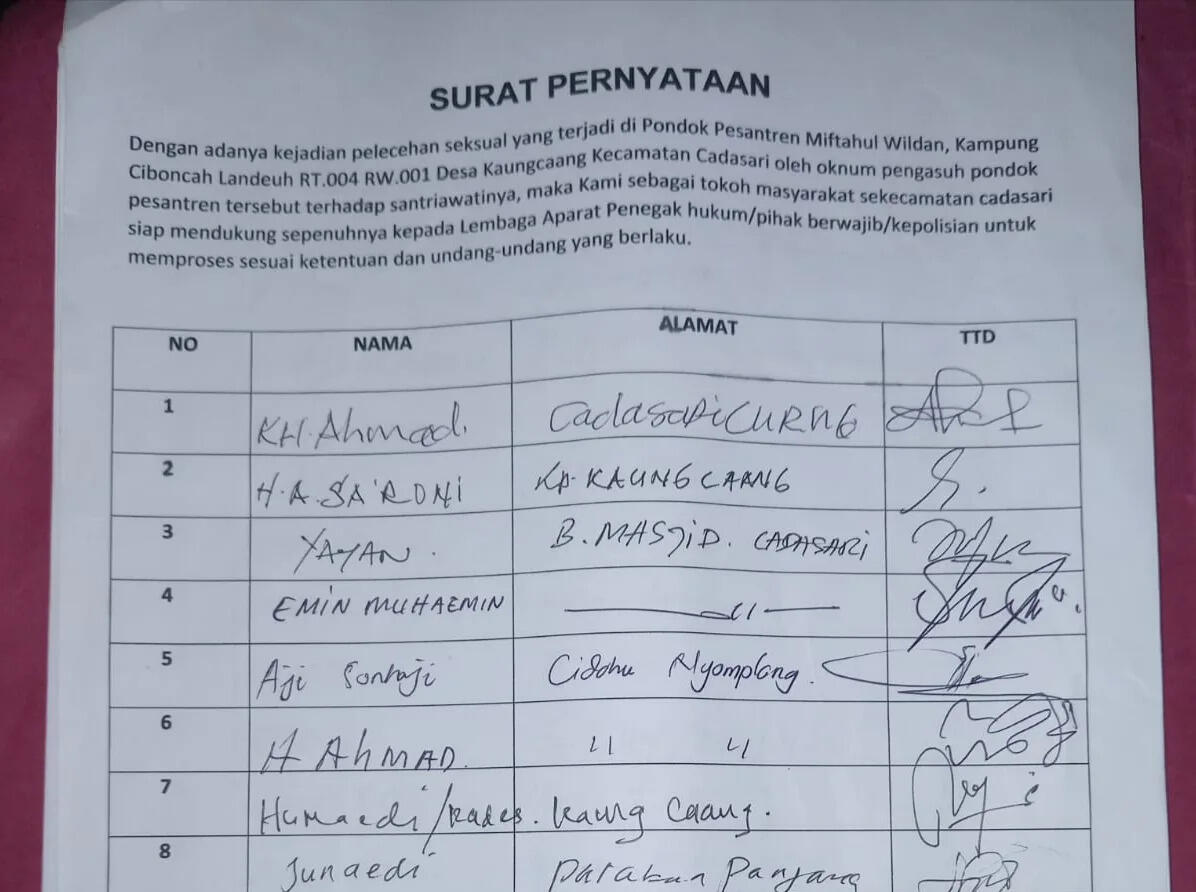 SURAT PERNYATAAN
Dengan adanya kejadian pelecehan seksual yang terjadi di Pondok Pesantren Miftahul Wildan, Kampung
Ciboncah Landeuh RT.004 RW.001 Desa Kaungcaang Kecamatan Cadasari oleh oknum pengasuh pondok
pesantren tersebut terhadap santriawatinya, maka Kami sebagai tokoh masyarakat sekecamatan cadasari
siap mendukung sepenuhnya kepada Lembaga Aparat Penegak hukum/pihak berwajib/kepolisian untuk
memproses sesuai ketentuan dan undang-undang yang berlaku.
NO NAMA ALAMAT TTD
1 KH. Ahmad. Cadasari
2 H.A. SA'RONI KP. KAUNG CAANG
3 YAYAN. B. MASJID. CADASARI
4 EMIN MUHAEMIN 11
5 Aji Sonhaji Nyomplong.
6 H AHMAD. 11 11
7 Humaedi/kades. Kaung Caang.
8 Junaedi Panjang